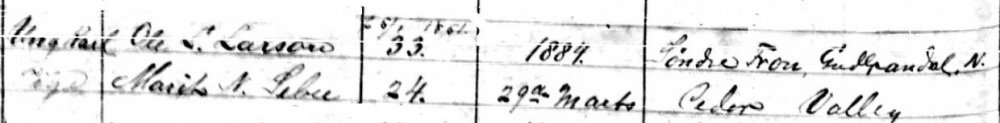 Ungkarl Ole L. Larson 33. 1884. Söndre Fron, Gudbrandsdal. N.
Pige Marit N. 24. 29de Marts Ceder Valley